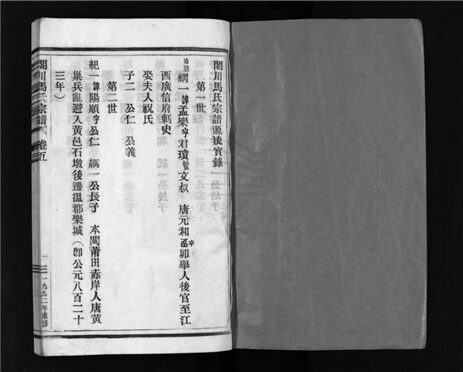 閩川馬氏宗譜源流實錄
第一世
綱一諱孟樂字君瓊號文叔 唐元和辛卯舉人後官至江
西廣信府刺史
娶夫人祝氏
子二 公仁 公義
第二世
紀一諱陽順字公仁 綱一公長子 本閩莆田赤岸人唐黃
巢兵亂避入黃邑石墩後遷温郡樂城(即公元八百二十
三年)
閩川馬氏宗譜 卷首
一
一九九二年重修